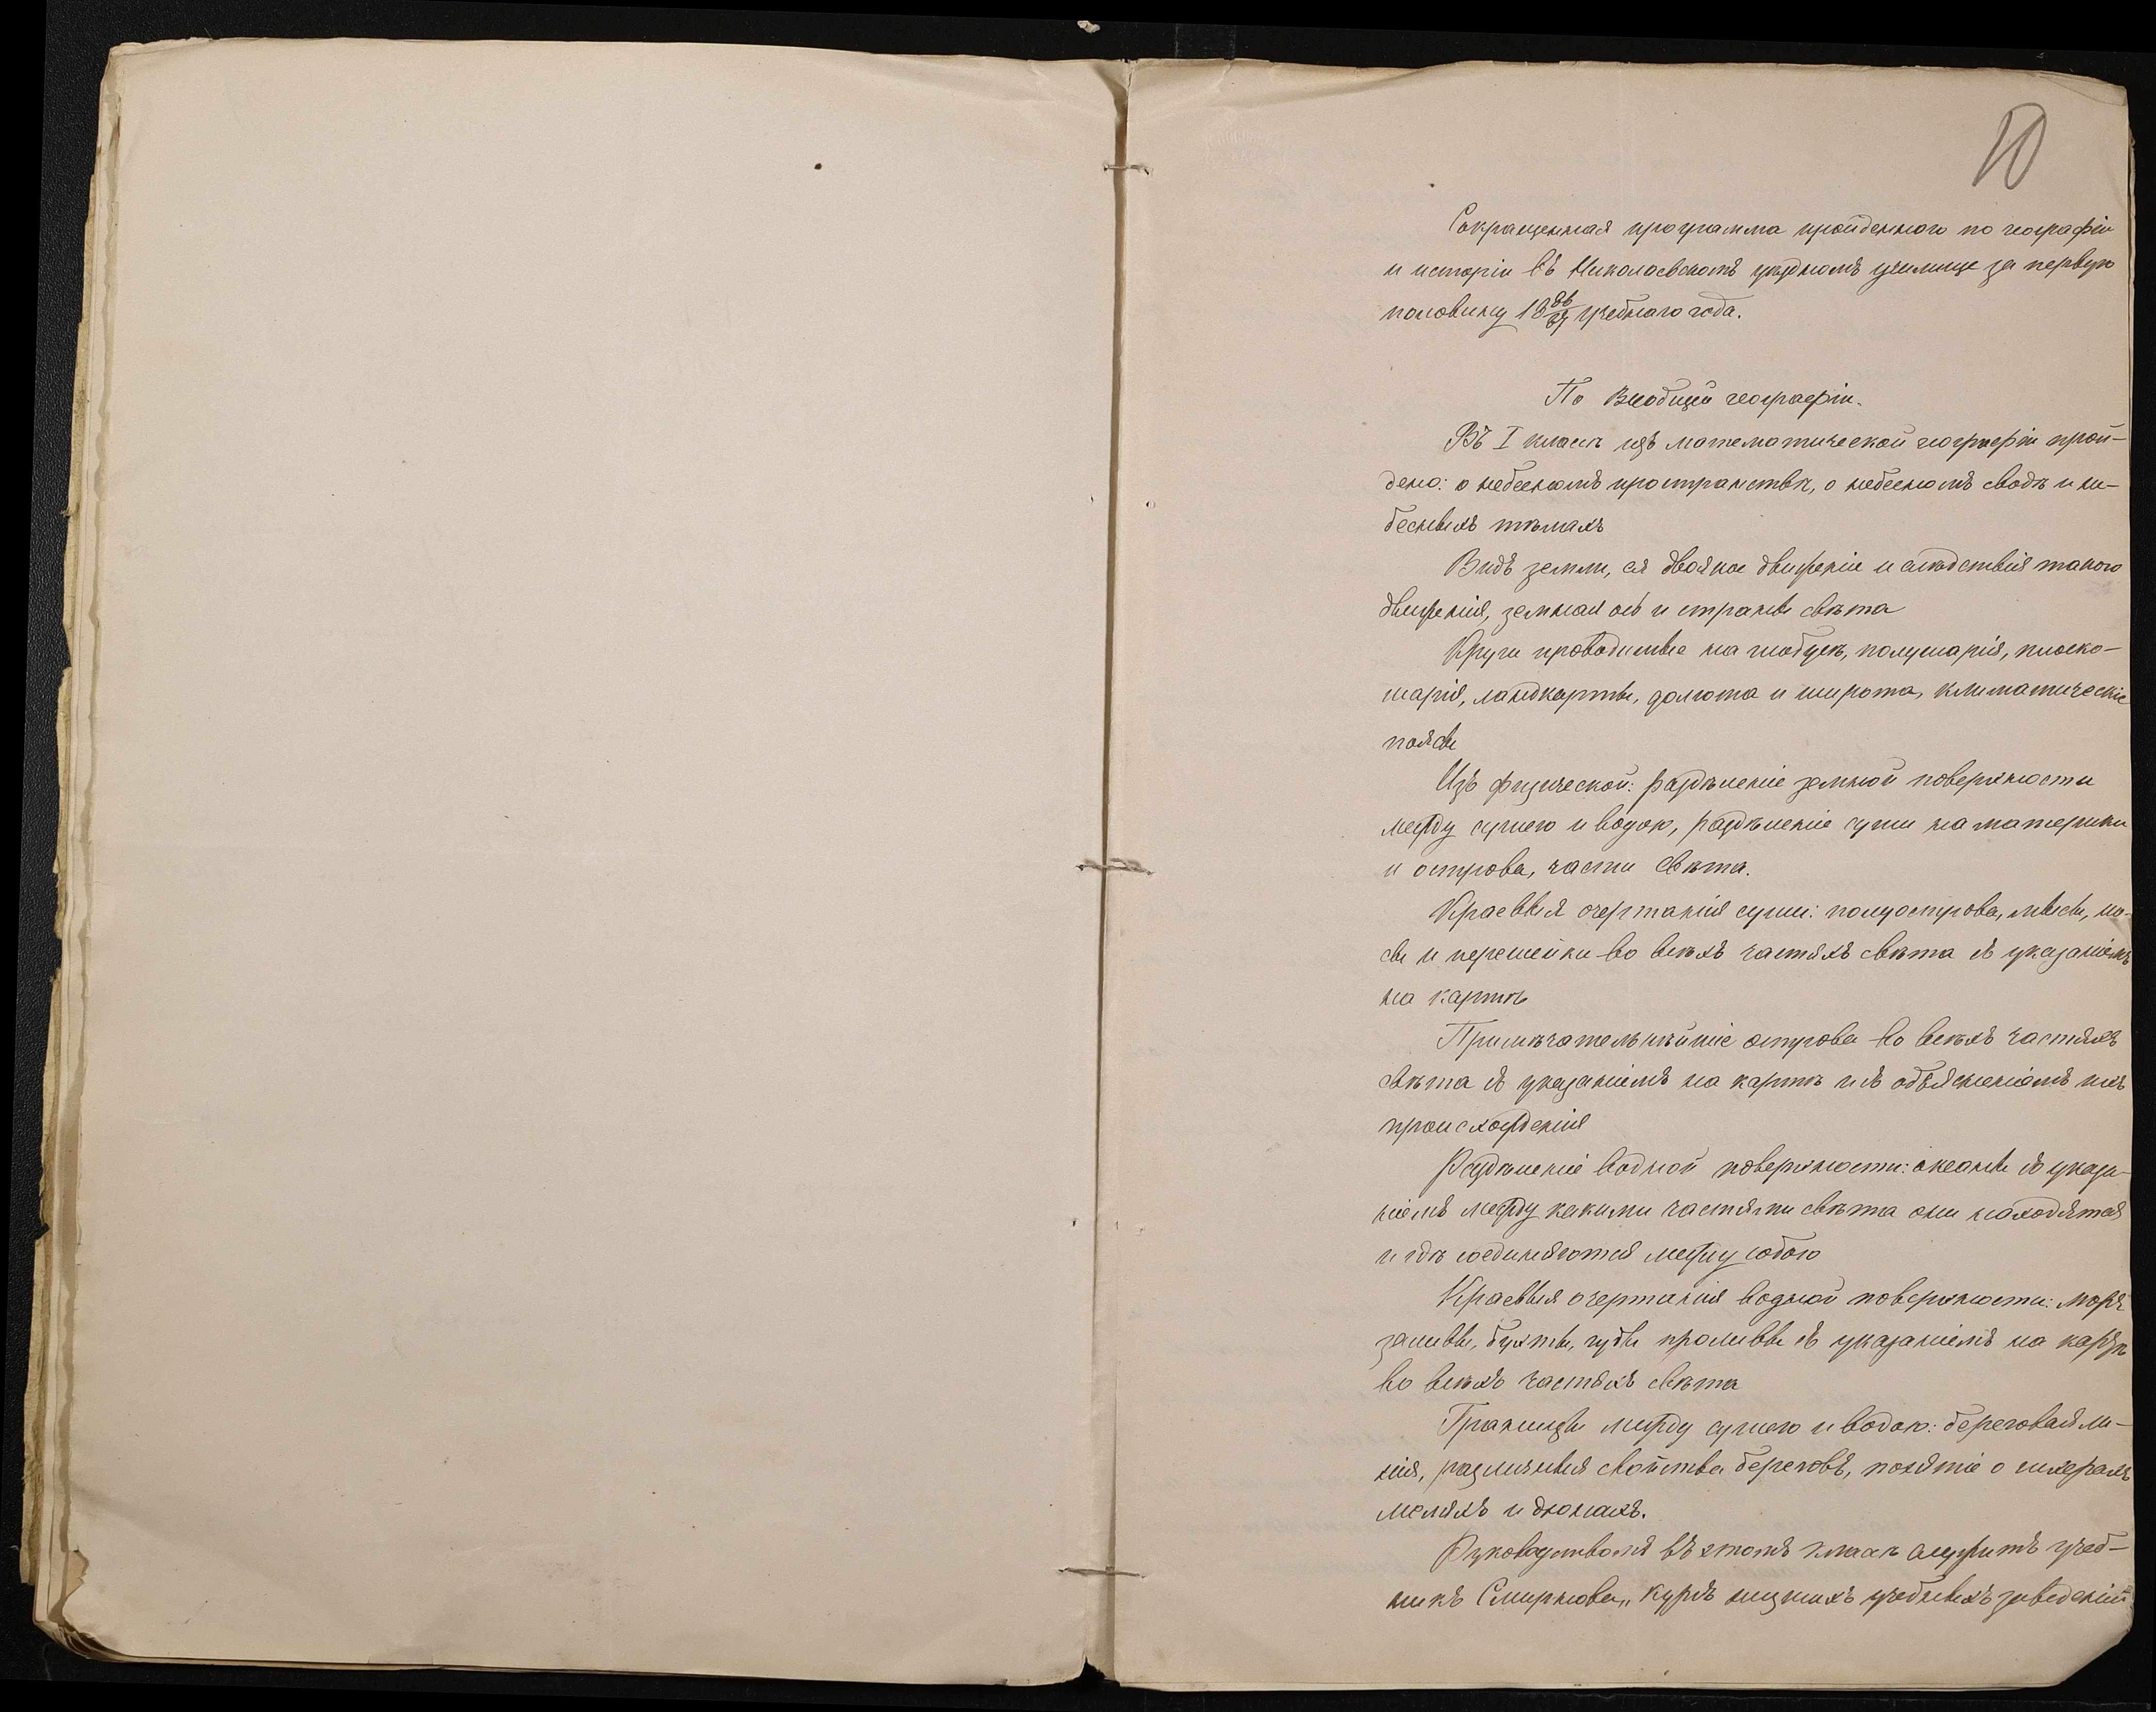 10
Сокращенная программа пройденнаго по географіи
и исторіи въ Николаевскомъ уѣздномъ училище за первую
половину 18 86/87 учебнаго года.
По Всеобщей географіи.
Въ I классѣ изъ математической географіи прой-
дено: о небесномъ пространствѣ, о небесномъ сводѣ и не-
бесныхъ тѣлахъ
Видъ земли, ея двоякое движеніе и слѣдствія такого
движенія, земная ось и страны свѣта
Круги проводимые на глобусѣ, полушарія, плоско-
шарія, ландкарты, долгота и широта, климатическіе
поясы
Изъ физической: раздѣленіе земной поверхности
между сушею и водою, раздѣленіе суши на материки
и острова, части свѣта.
Краевыя очертанія суши: полуострова, мысы, ко-
сы и перешейки во всѣхъ частяхъ свѣта съ указаніемъ
на картѣ
Примѣчательнѣйшіе острова во всѣхъ частяхъ
свѣта съ указаніемъ на картѣ и съ объясненіемъ ихъ
происхожденія
Раздѣленіе водной поверхности: океаны съ указа-
ніемъ между какими частями свѣта они находятся
и гдѣ соединяются между собою
Краевыя очертанія водной поверхности: моря
заливы, бухты, губы проливы съ указаніемъ на картѣ
во всѣхъ частяхъ свѣта
Границы между сушею и водою: береговая ли-
нія, различныя свойства береговъ, понятіе о шхерахъ
меляхъ и дюнахъ.
Руководствомъ въ этомъ классѣ служитъ учеб-
никъ Смирнова „Курсъ низшихъ учебныхъ заведеній"